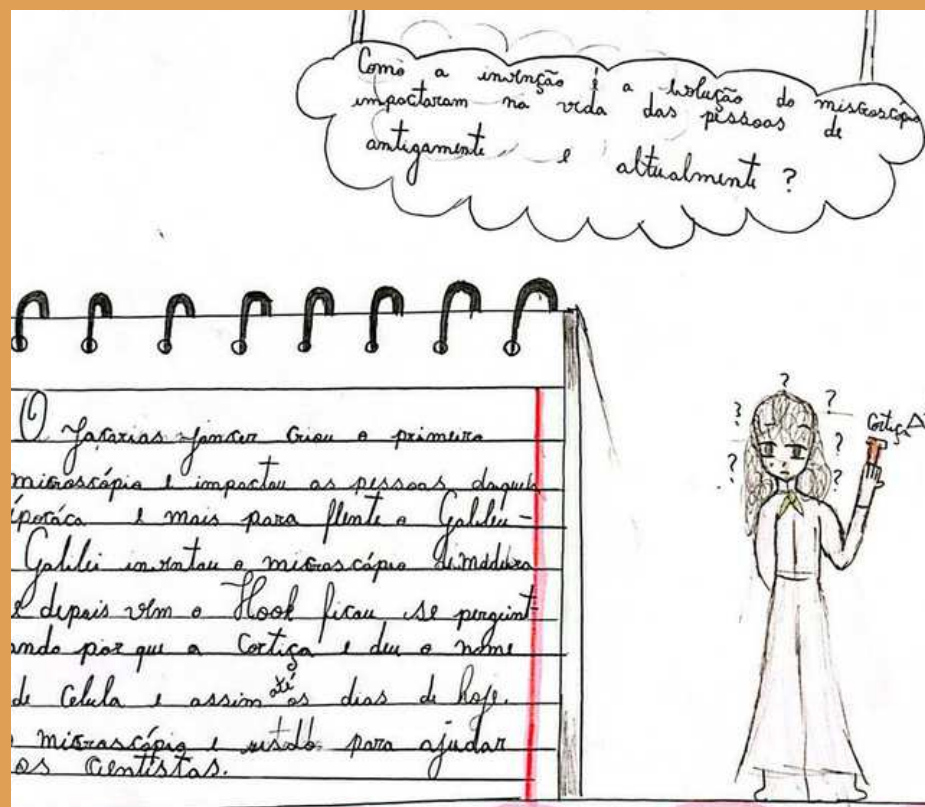 Como a invenção e a evolução do misgroscópio
impactaram na vida das pessoas de
antigamente e altualmente ?
O Jacarias Janser criou o primeiro
microscópio e impactou as pessoas daquela
ipocáca e mais para flente o Galileu-
Galilei inventou o microscópio de maddeira
e depois vem o Hook ficou se pergunt-
ando por que a Cortiça e deu o nome
de Celula e assim até os dias de hoje.
o misrascópio e para ajudar
os cientistas.
? ? ? ? ? ? ?
Cortiça